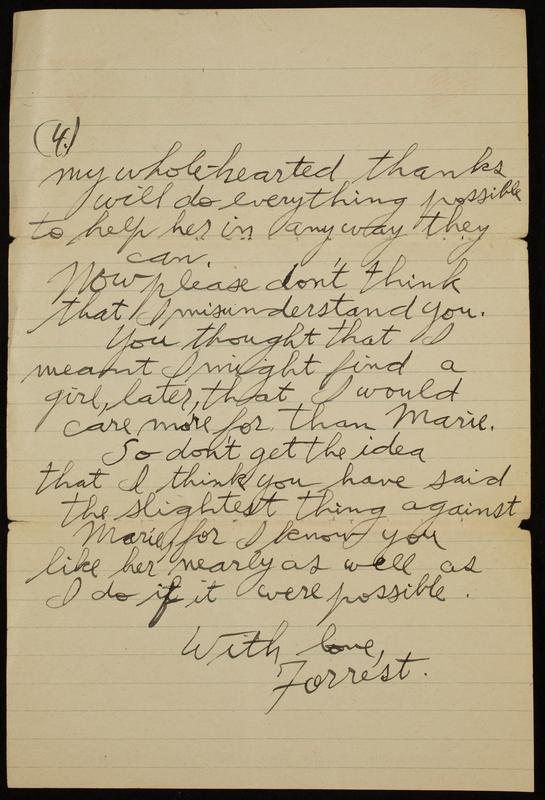 (4.)
my whole-hearted thanks
will do everything possible
to help her in any way they
can.
Now please don't think
that I misunderstand you.
You thought that I
meant I might find a
girl, later, that I would
care more for than Marie.
So don't get the idea
that I think you have said
the slightest thing against
Marie, for I know you
like her nearly as well as
I do if it were possible.
With love,
Forrest.